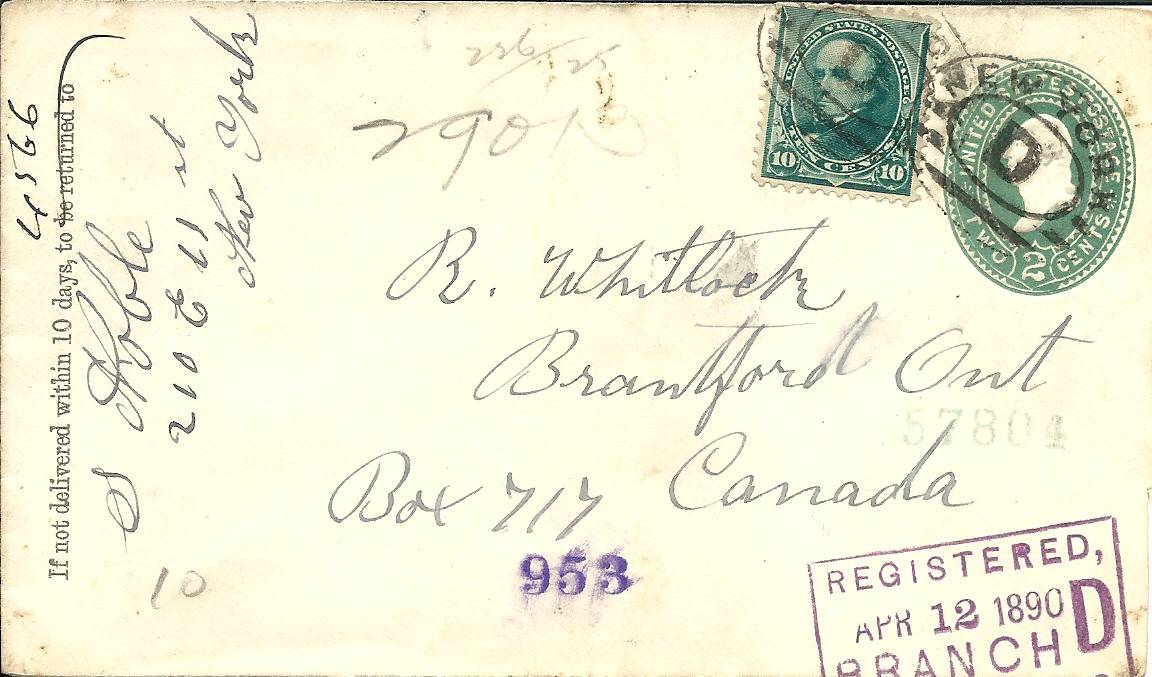 4566
If not delivered within 10 days, to be returned to
S Noble
210 E 11 st
New York
2901
UNITED STATES POSTAGE
TEN CENTS
10 10
UNITED STATES POSTAGE
TWO CENTS
2
NEW YORK
D
R. Whitlock
Brantford Ont
57804
Box 717 Canada
953
10
REGISTERED,
APR 12 1890
BRANCH D